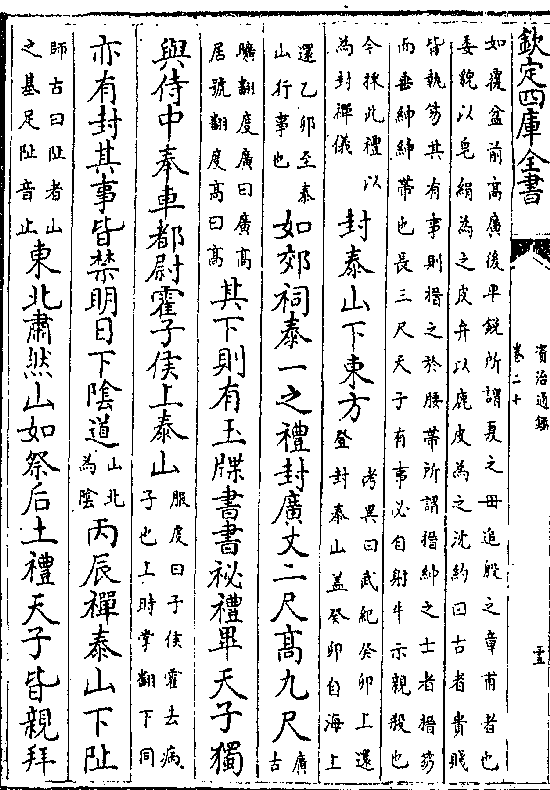 欽定四庫全書
資治通鑑
卷二十
如覆盆前高廣後卑銳所謂夏之毋追殷之章甫者也
委貌以皂絹為之皮弁以鹿皮為之沈約曰古者貴賤
皆執笏其有事則搢之於腰帶所謂搢紳之士者搢笏
而垂紳紳帶也長三尺天子有事必自射牛示親殺也
今採此禮以為封禪儀封泰山下東方考異曰武紀癸卯上還登封泰山盖癸卯自海上
還乙卯至泰山行事也如郊祠泰一之禮封廣丈二尺高九尺廣古
曠翻度廣曰廣高居號翻度高曰高其下則有玉牒書書祕禮畢天子獨
與侍中奉車都尉霍子侯上泰山服虔曰子侯霍去病子也上時掌翻下同
亦有封其事皆禁明日下陰道山北為陰丙辰禪泰山下阯
師古曰阯者山之基足阯音止東北肅然山如祭后土禮天子皆親拜